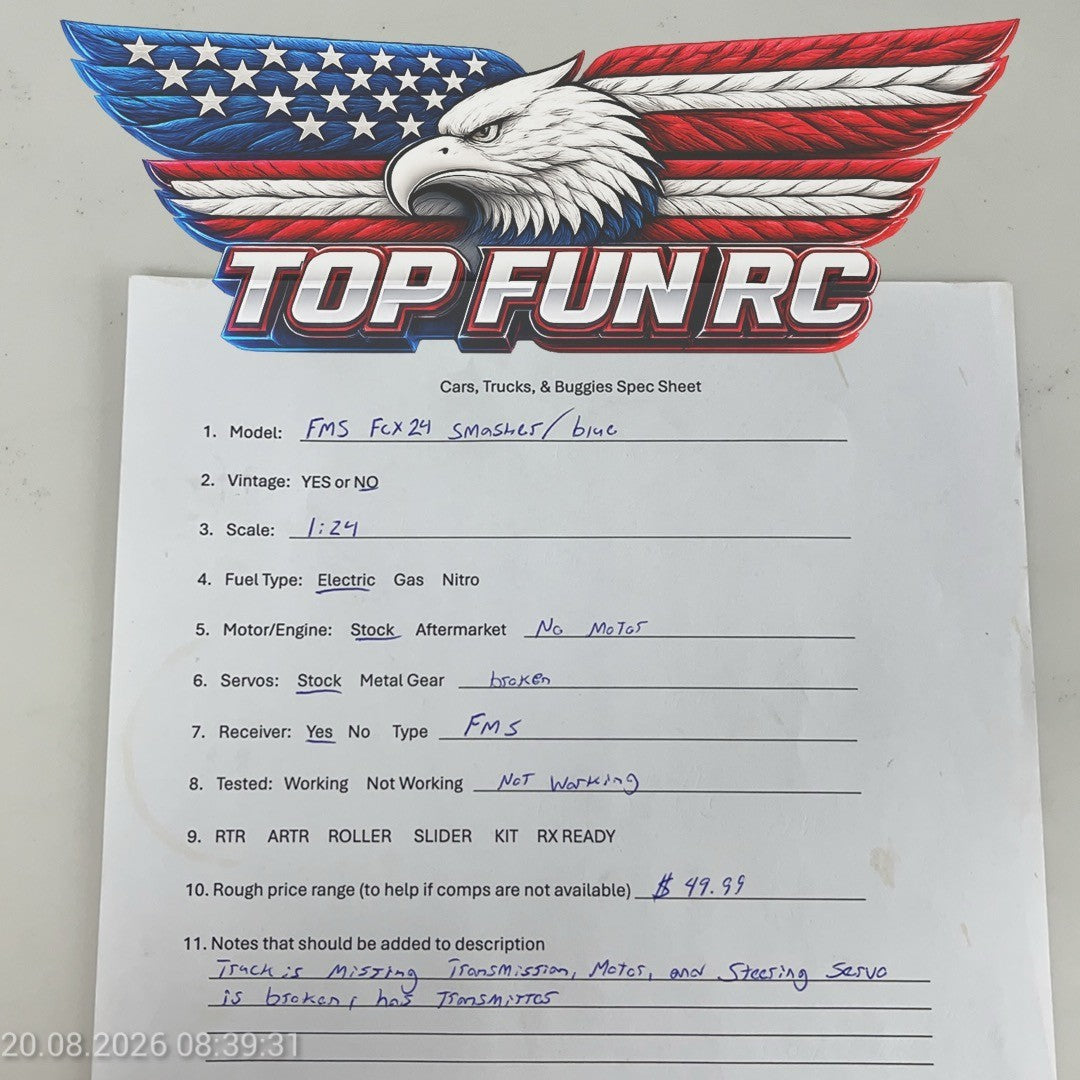 TOP FUN RC
Cars, Trucks, & Buggies Spec Sheet
1. Model: FMS FCX24 Smasher/blue
2. Vintage: YES or NO
3. Scale: 1:24
4. Fuel Type: Electric Gas Nitro
5. Motor/Engine: Stock Aftermarket No Motor
6. Servos: Stock Metal Gear broken
7. Receiver: Yes No Type FMS
8. Tested: Working Not Working Not Working
9. RTR ARTR ROLLER SLIDER KIT RX READY
10. Rough price range (to help if comps are not available) $ 49.99
11. Notes that should be added to description
Truck is Missing Transmission, Motor, and Steering Servo
is broken, has Transmitter
20.08.2026 08:39:31